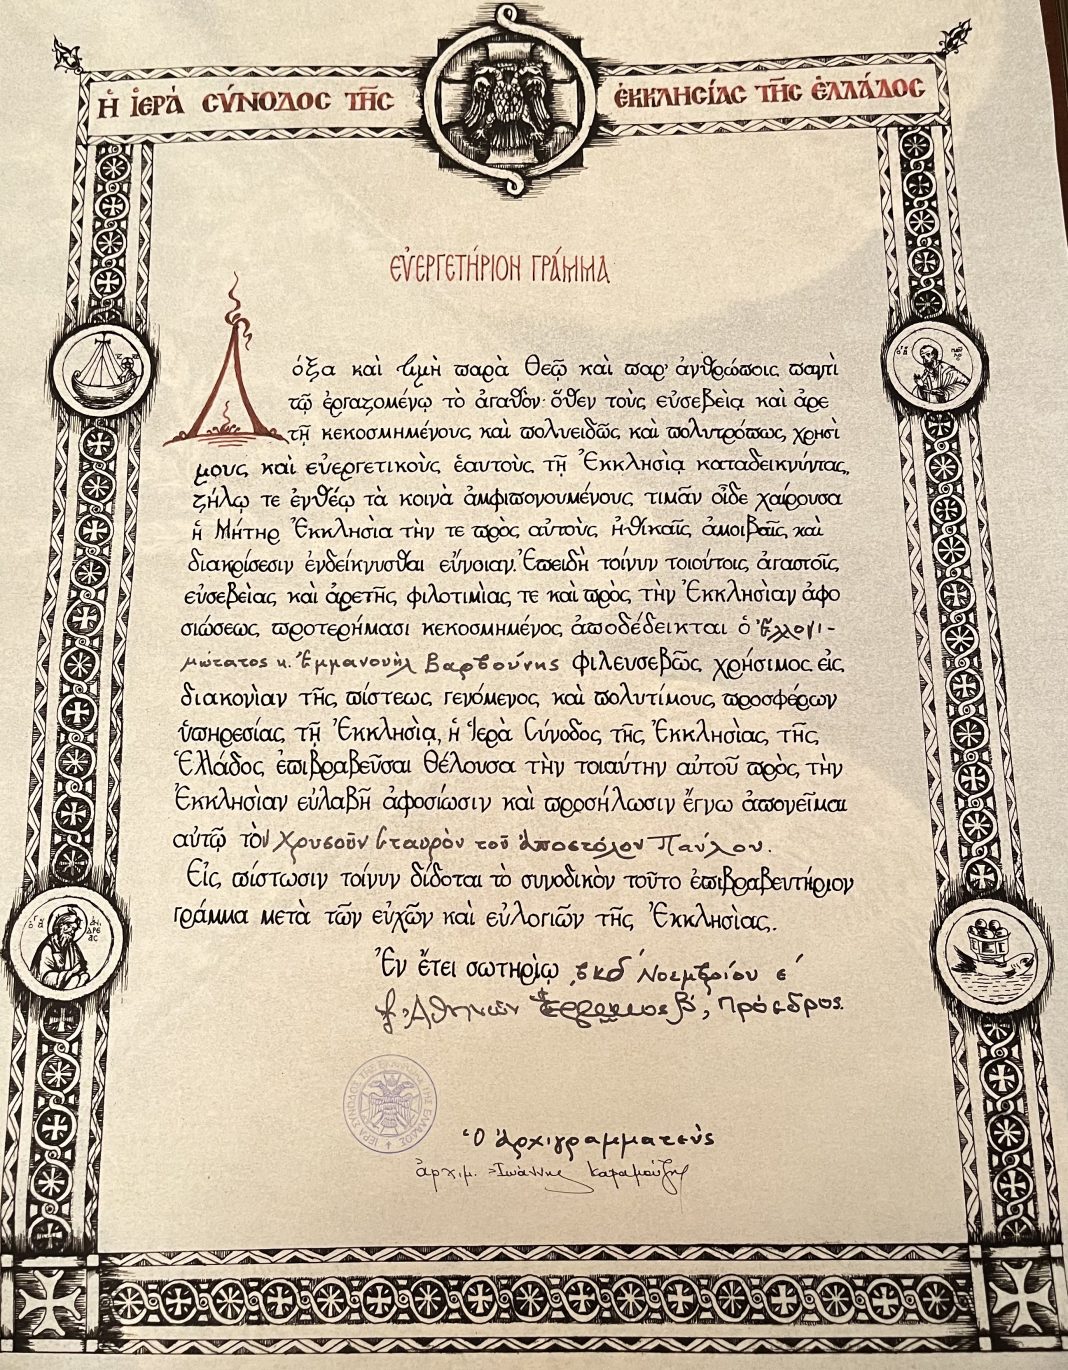 Ἡ ἹΕΡᾺ ΣΎΝΟΔΟΣ ΤΗ͂Σ ἘΚΚΛΗΣΊΑΣ ΤΗ͂Σ ἙΛΛΆΔΟΣ
ΕΥ̓ΕΡΓΕΤΉΡΙΟΝ ΓΡΆΜΜΑ
Δόξα καὶ τιμὴ παρὰ Θεῷ καὶ παρ' ἀνθρώποις παντὶ
τῷ ἐργαζομένῳ τὸ ἀγαθὸν· ὅθεν τοὺς εὐσεβείᾳ καὶ ἀρε
τῇ κεκοσμημένους καὶ πολυειδῶς καὶ πολυτρόπως χρησί
μους καὶ εὐεργετικοὺς ἑαυτοὺς τῇ Ἐκκλησίᾳ καταδεικνύντας,
ζήλῳ τε ἐνθέῳ τὰ κοινὰ ἀμφιπονουμένους τιμᾶν οἶδε χαίρουσα
ἡ Μήτηρ Ἐκκλησία τὴν τε πρὸς αὐτοὺς ἠθικαῖς ἀμοιβαῖς καὶ
διακρίσεσιν ἐνδείκνυσθαι εὔνοιαν. Ἐπειδὴ τοίνυν τοιούτοις ἀγαστοῖς
εὐσεβείας καὶ ἀρετῆς φιλοτιμίας τε καὶ πρὸς τὴν Ἐκκλησίαν ἀφο
σιώσεως προτερήμασι κεκοσμημένος ἀποδέδεικται ὁ Ἐλλογι-
μώτατος κ. Ἐμμανουὴλ Βαρβούνης φιλευσεβῶς χρήσιμος εἰς
διακονίαν τῆς πίστεως γενόμενος καὶ πολυτίμους προσφέρων
ὑπηρεσίας τῇ Ἐκκλησίᾳ, ἡ Ἱερὰ Σύνοδος τῆς Ἐκκλησίας τῆς
Ἑλλάδος ἐπιβραβεῦσαι θέλουσα τὴν τοιαύτην αὐτοῦ πρὸς τὴν
Ἐκκλησίαν εὐλαβῆ ἀφοσίωσιν καὶ προσήλωσιν ἔγνω ἀπονεῖμαι
αὐτῷ τὸν Χρυσοῦν Σταυρὸν τοῦ Ἀποστόλου Παύλου.
Εἰς πίστωσιν τοίνυν δίδοται τὸ συνοδικὸν τοῦτο ἐπιβραβευτήριον
γράμμα μετὰ τῶν εὐχῶν καὶ εὐλογιῶν τῆς Ἐκκλησίας.
Ἐν ἔτει σωτηρίῳ ͵βκδ΄ Νοεμβρίου ε΄
† Ἀθηνῶν Ἱερώνυμος Β΄, Πρόεδρος.
ΙΕΡΑ ΣΥΝΟΔΟΣ ΤΗΣ ΕΚΚΛΗΣΙΑΣ ΤΗΣ ΕΛΛΑΔΟΣ
Ὁ Ἀρχιγραμματεὺς
ἀρχιμ. Ἰωάννης Καραμούζης